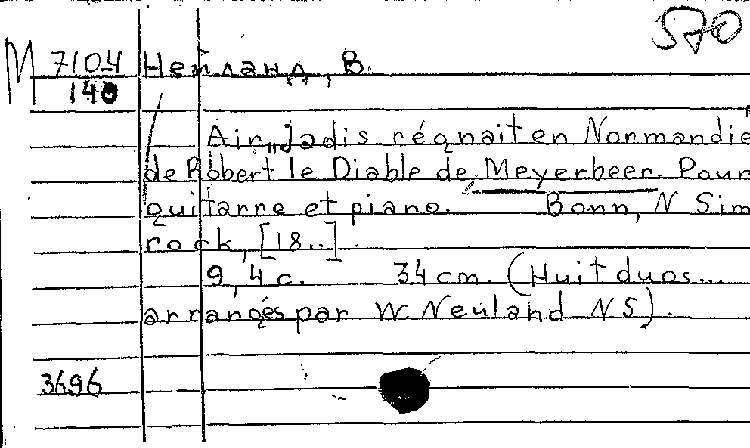 570
М 7104 Нейланд, В.
140
Air „Jadis régnait en Normandie
de Robert le Diable de Meyerbeer. Pour
guitarre et piano. Bonn, N Sim
rock, [18..]
9, 4 c. 34 cm. (Huit duos...
arrangés par W Neuland N 5).
3696